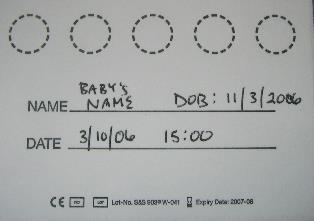 BABY'S
NAME NAME DOB: 11/3/2006
DATE 3/10/06 15:00
CE IVD LOT Lot-No. S&S 903® W-041 Expiry Date: 2007-08